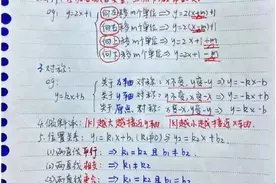 eg: y=2x+1
向左移m个单位 ⇒ y=2(x+m)+1
向右移m个单位 ⇒ y=2(x-m)+1
向上移m个单位 ⇒ y=2x+1+m
向下移m个单位 ⇒ y=2x+1-m
3.对称:
eg:
y=kx+b
关于x轴对称: x不变,y变-y ⇒ y=-kx-b
关于y轴对称: y不变,x变-x ⇒ y=-kx+b
关于原点对称: x变-x,y变-y ⇒ y=kx-b
4.倾斜率: |k|越大越接近y轴 |k|越小越接近x轴.
5.位置关系: y=k₁x+b₁(k₁≠0) 与 y=k₂x+b₂
(1)两直线平行 ⇒ k₁=k₂ 且 b₁≠b₂
(2)两直线相交: ⇒ k₁≠k₂
(3)两直线重合: ⇒ k₁=k₂ 且 b₁=b₂